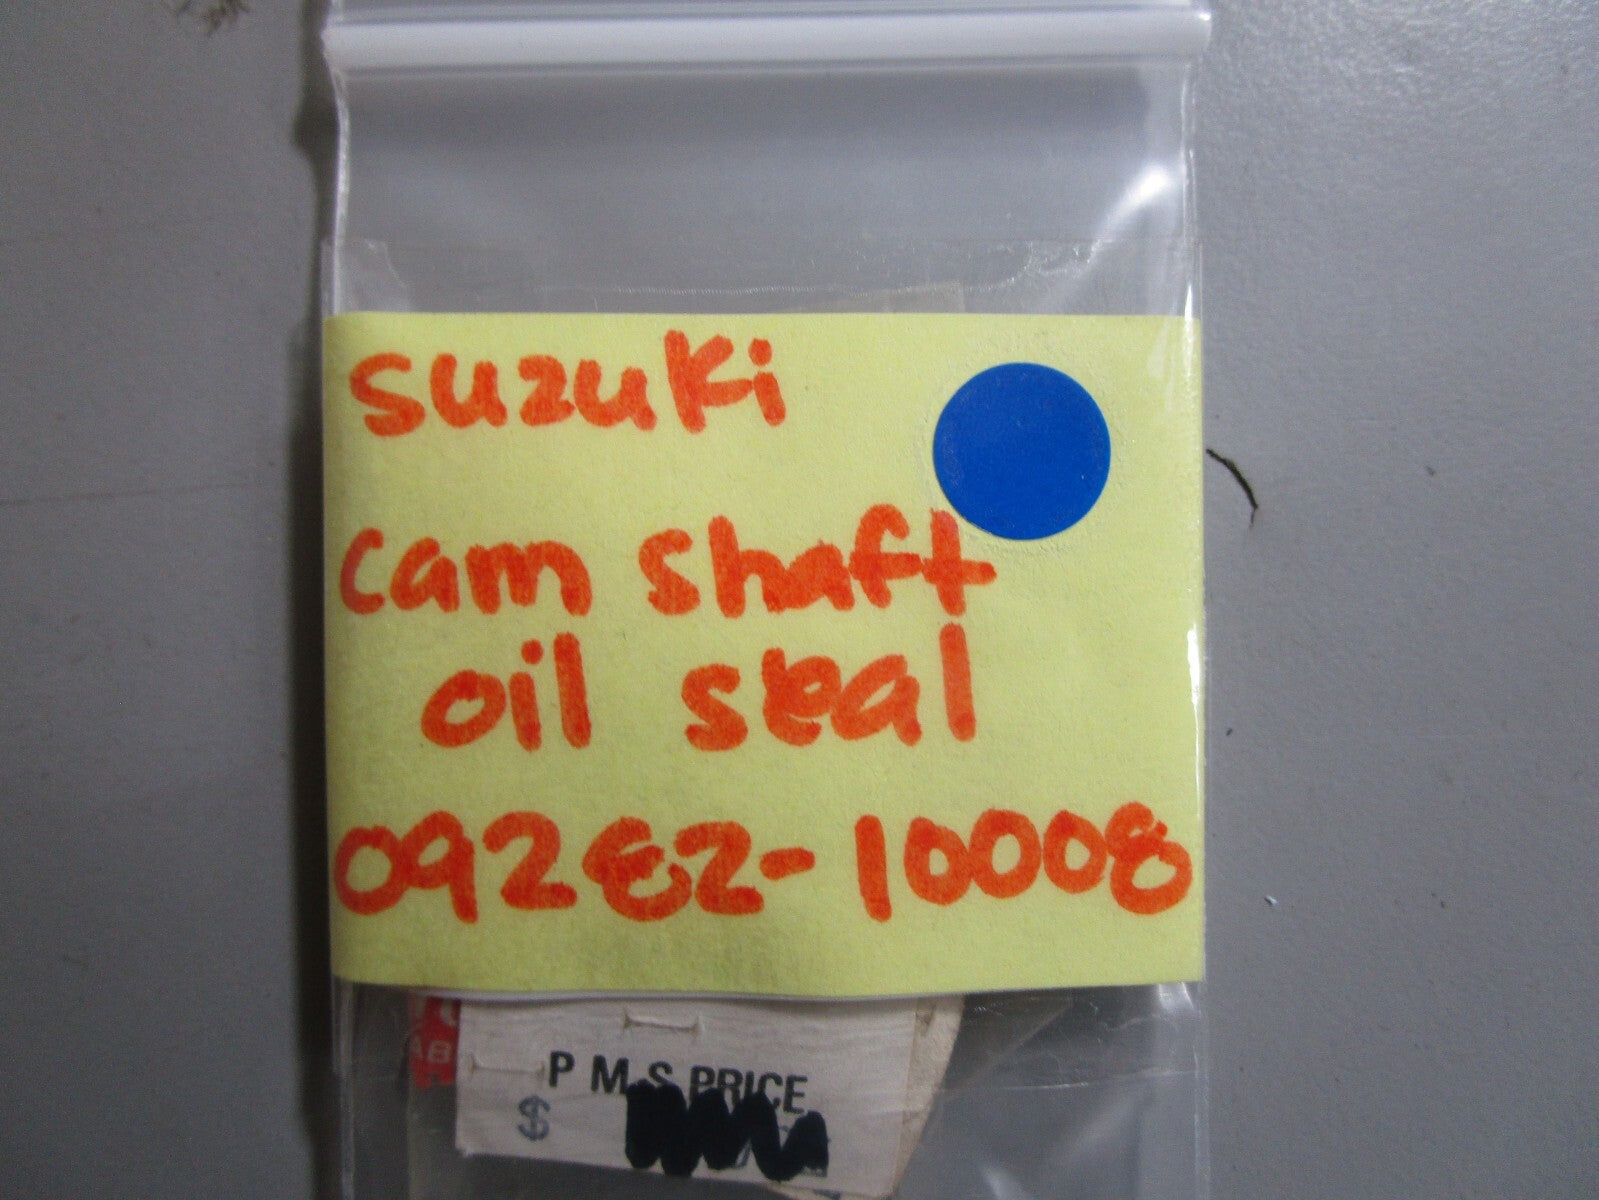 suzuki
cam shaft
oil seal
09282-10008
AB
P M S PRICE
$